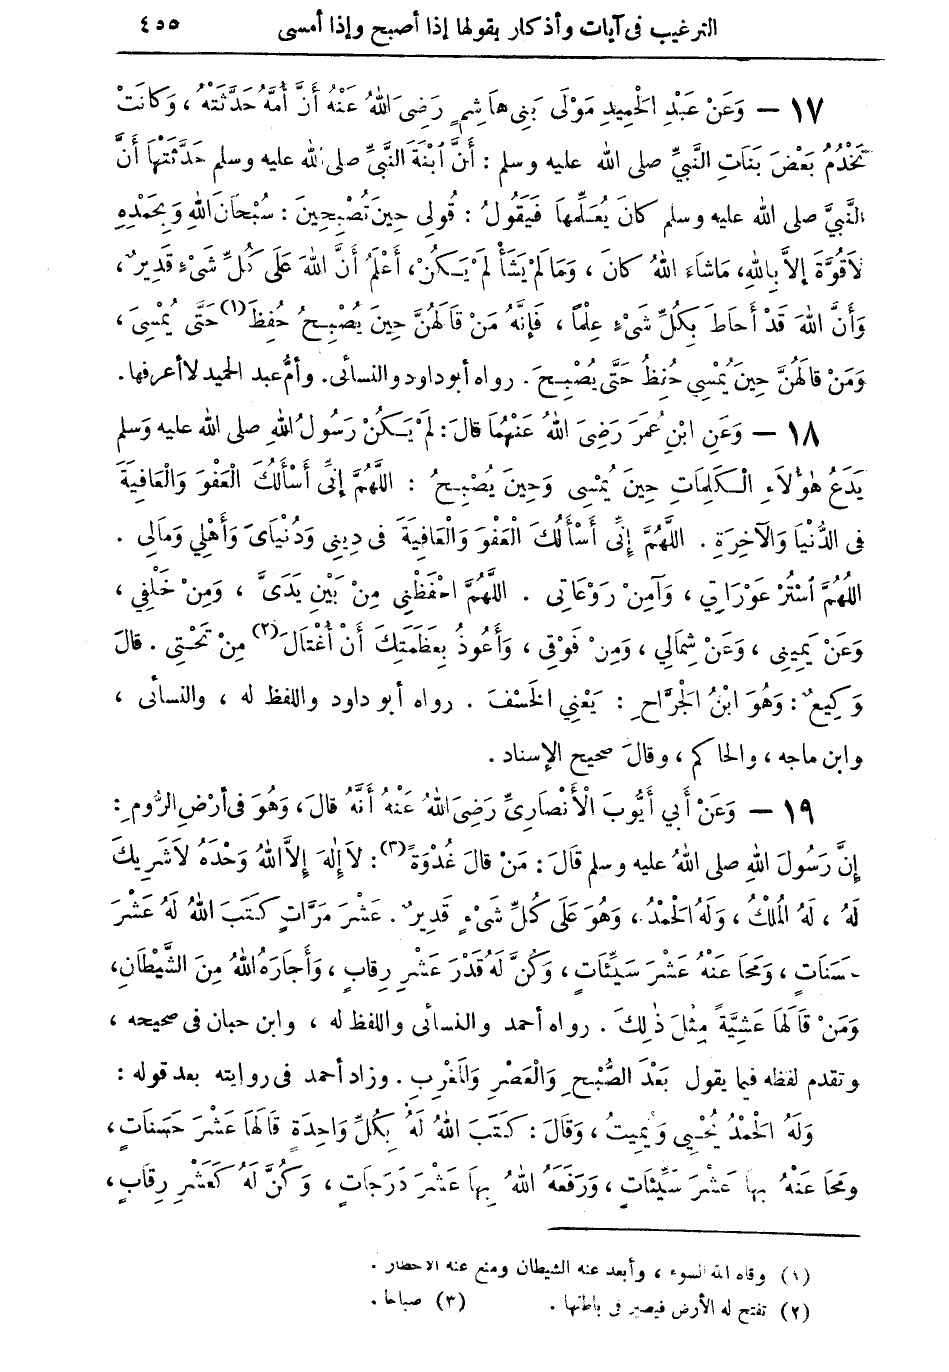 الترغيب فى آيات وأذكار يقولها إذا أصبح وإذا أمسى ٤٥٥
١٧ — وَعَنْ عَبْدِ الْحَمِيدِ مَوْلَى بَنِى هَاشِمٍ رَضِىَ اللهُ عَنْهُ أَنَّ أُمَّهُ حَدَّثَتْهُ ، وَكَانَتْ
تَخْدُمُ بَعْضَ بَنَاتِ النَّبِيِّ صلى الله عليه وسلم : أَنَّ ابْنَةَ النَّبِيِّ صلى الله عليه وسلم حَدَّثَتْهَا أَنَّ
النَّبِيَّ صلى الله عليه وسلم كَانَ يُعَلِّمُهَا فَيَقُولُ : قُولِى حِينَ تُصْبِحِينَ : سُبْحَانَ اللهِ وَبِحَمْدِهِ
لَاقُوَّةَ إِلاَّ بِاللهِ، مَاشَاءَ اللهُ كَانَ ، وَمَا لَمْ يَشَأْ لَمْ يَكُنْ، أَعْلَمُ أَنَّ اللهَ عَلَى كُلِّ شَىْءٍ قَدِيرٌ ،
وَأَنَّ اللهَ قَدْ أَحَاطَ بِكُلِّ شَىْءٍ عِلْماً ، فَإِنَّهُ مَنْ قَالَهُنَّ حِينَ يُصْبِحُ حُفِظَ (١) حَتَّى يُمْسِىَ ،
وَمَنْ قَالَهُنَّ حِينَ يُمْسِي حُفِظَ حَتَّى يُصْبِحَ . رواه أبو داود والنسائى. وأمُّ عبد الحميد لا أعرفها.
١٨ — وَعَنِ ابْنِ عُمَرَ رَضِىَ اللهُ عَنْهُمَا قَالَ : لَمْ يَكُنْ رَسُولُ اللهِ صلى الله عليه وسلم
يَدَعُ هٰؤُلَاءِ الْكَلِمَاتِ حِينَ يُمْسِى وَحِينَ يُصْبِحُ : اللَّهُمَّ إِنِّى أَسْأَلُكَ الْعَفْوَ وَالْعَافِيَةَ
فِى الدُّنْيَا وَالْآخِرَةِ . اللَّهُمَّ إِنِّى أَسْأَلُكَ الْعَفْوَ وَالْعَافِيَةَ فى دِينِى وَدُنْيَاىَ وَأَهْلِي وَمَالِى .
اللَّهُمَّ اسْتُرْ عَوْرَاتِي ، وَآمِنْ رَوْعَاتِى . اللَّهُمَّ احْفَظْنِى مِنْ بَيْنِ يَدَىَّ ، وَمِنْ خَلْفِي ،
وَعَنْ يَمِينِى ، وَعَنْ شِمَالِي ، وَمِنْ فَوْقِى ، وَأَعُوذُ بِعَظَمَتِكَ أَنْ أُغْتَالَ (٢) مِنْ تَحْتِى . قَالَ
وَكِيعٌ : وَهُوَ ابْنُ الْجَرَّاحِ : يَعْنِي الْخَسْفَ . رواه أبو داود واللفظ له ، والنسائى ،
وابن ماجه ، والحاكم ، وقالَ صحيح الإسناد .
١٩ — وَعَنْ أَبِي أَيُّوبَ الْأَنْصَارِىِّ رَضِىَ اللهُ عَنْهُ أَنَّهُ قَالَ، وَهُوَ فى أَرْضِ الرُّومِ :
إِنَّ رَسُولَ اللهِ صلى اللهُ عليه وسلم قَالَ : مَنْ قَالَ غُدْوَةً (٣) : لَا إِلٰهَ إِلاَّ اللهُ وَحْدَهُ لَا شَرِيكَ
لَهُ ، لَهُ الْمُلْكُ ، وَلَهُ الْحَمْدُ ، وَهُوَ عَلَى كُلِّ شَىْءٍ قَدِيرٌ . عَشْرَ مَرَّاتٍ كَتَبَ اللهُ لَهُ عَشْرَ
حَسَنَاتٍ ، وَمَحَا عَنْهُ عَشْرَ سَيِّئَاتٍ ، وَكُنَّ لَهُ قَدْرَ عَشْرِ رِقَابٍ ، وَأَجَارَهُ اللهُ مِنَ الشَّيْطَانِ،
وَمَنْ قَالَهَا عَشِيَّةً مِثْلَ ذٰلِكَ . رواه أحمد والنسائى واللفظ له ، وابن حبان فى صحيحه ،
وتقدم لفظه فيما يقول بَعْدَ الصُّبْحِ وَالْعَصْرِ وَالْمَغْرِبِ . وزاد أحمد فى روايته بعد قوله :
وَلَهُ الْحَمْدُ يُحْيِي وَيُمِيتُ ، وَقَالَ : كَتَبَ اللهُ لَهُ بِكُلِّ وَاحِدَةٍ قَالَهَا عَشْرَ حَسَنَاتٍ ،
وَمَحَا عَنْهُ بِهَا عَشْرَ سَيِّئَاتٍ ، وَرَفَعَهُ اللهُ بِهَا عَشْرَ دَرَجَاتٍ ، وَكُنَّ لَهُ كَعَشْرِ رِقَابٍ ،
(١) وقاه الله السوء ، وأبعد عنه الشيطان ومنع عنه الأخطار .
(٢) تفتح له الأرض فيصير فى باطنها . (٣) صباحا .